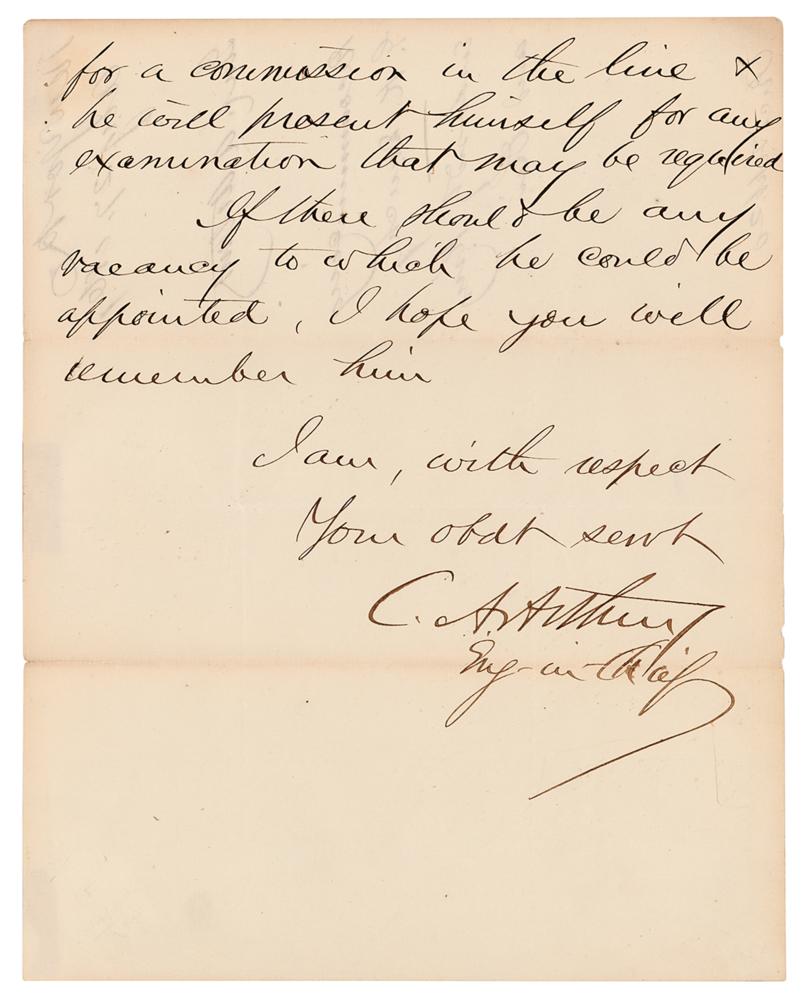 for a commission in the line &
he will present himself for any
examination that may be required
If there should be any
vacancy to which he could be
appointed, I hope you will
remember him
I am, with respect
Your obdt servt
C. A. Arthur
Eng-in-Chief